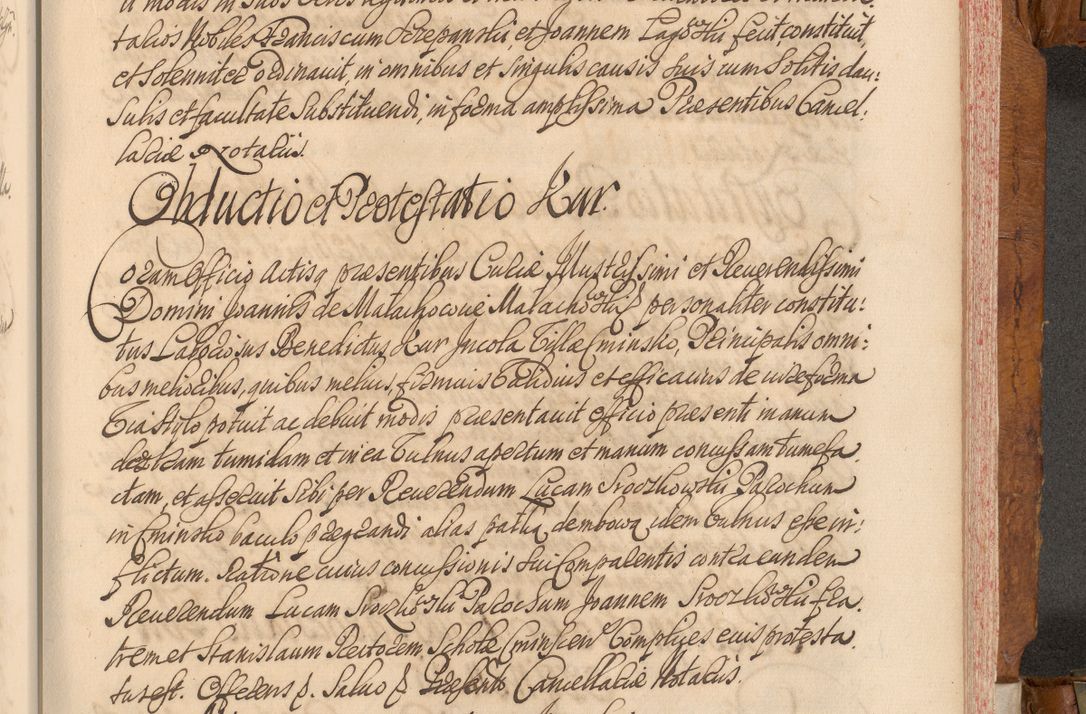 talios Nobiles Franciscum Szczepanski, et Joannem Lagowski fecit, constituit,
et Solenniter ordinavit, in omnibus et singulis causis suis cum Solitis clau:
sulis et facultate Substituendi, in forma amplissima Praesentibus Cancel:
lariae Notariis.
Obductio et Protestatio Kur.
Coram Officio Actisq praesentibus Curiae Illustrissimi et Reverendissimi
Domini Joannis de Malachowice Malachowski p personaliter constitu:
tus Laboriosus Benedictus Kur Incola Villae Cminsko, Principalis omni:
bus melioribus, quibus melius, firmius Validius et efficacius de jure forma
via Stylo potuit ac debuit modis praesentavit Officio praesenti manum
dextram tumidam et in ea Vulnus apertum et manum concussam tumefa
ctam, et asseruit Sibi per Reverendum Lucam ParoChum
in Cminsko baculo praegrandi alias pałką dembową idem Vulnus esse in:
flictum. Ratione cuius concussionis Sui Comparentis contra eundem
Reverendum Lucam Parochum Joannem fra
trem et Stanislaum Rectorem Scholae Complices eius protesta
tus est. Offerens p. Salvo p Praesente Cancellariae Notariis.